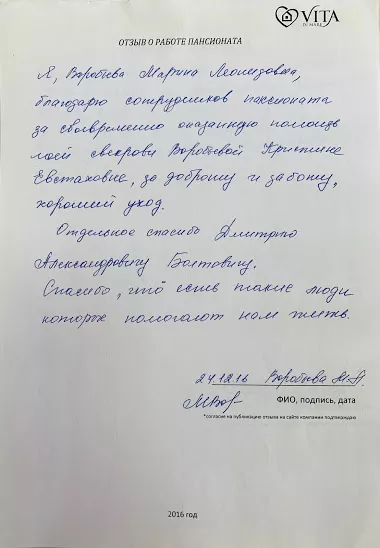 VITA
DI MARE
ОТЗЫВ О РАБОТЕ ПАНСИОНАТА
Я, Воробьева Марина Леонидовна,
благодарю сотрудников пансионата
за своевременно оказанную помощь
моей свекрови Воробьевой Кристине
Евстаховне, за доброту и заботу,
хороший уход.
Отдельное спасибо Дмитрию
Александровичу Болтовичу.
Спасибо, что есть такие люди
которые помогают нам жить.
24.12.16 Воробьева М.Л.
МВор
ФИО, подпись, дата
*согласие на публикацию отзыва на сайте компании подтверждаю
2016 год